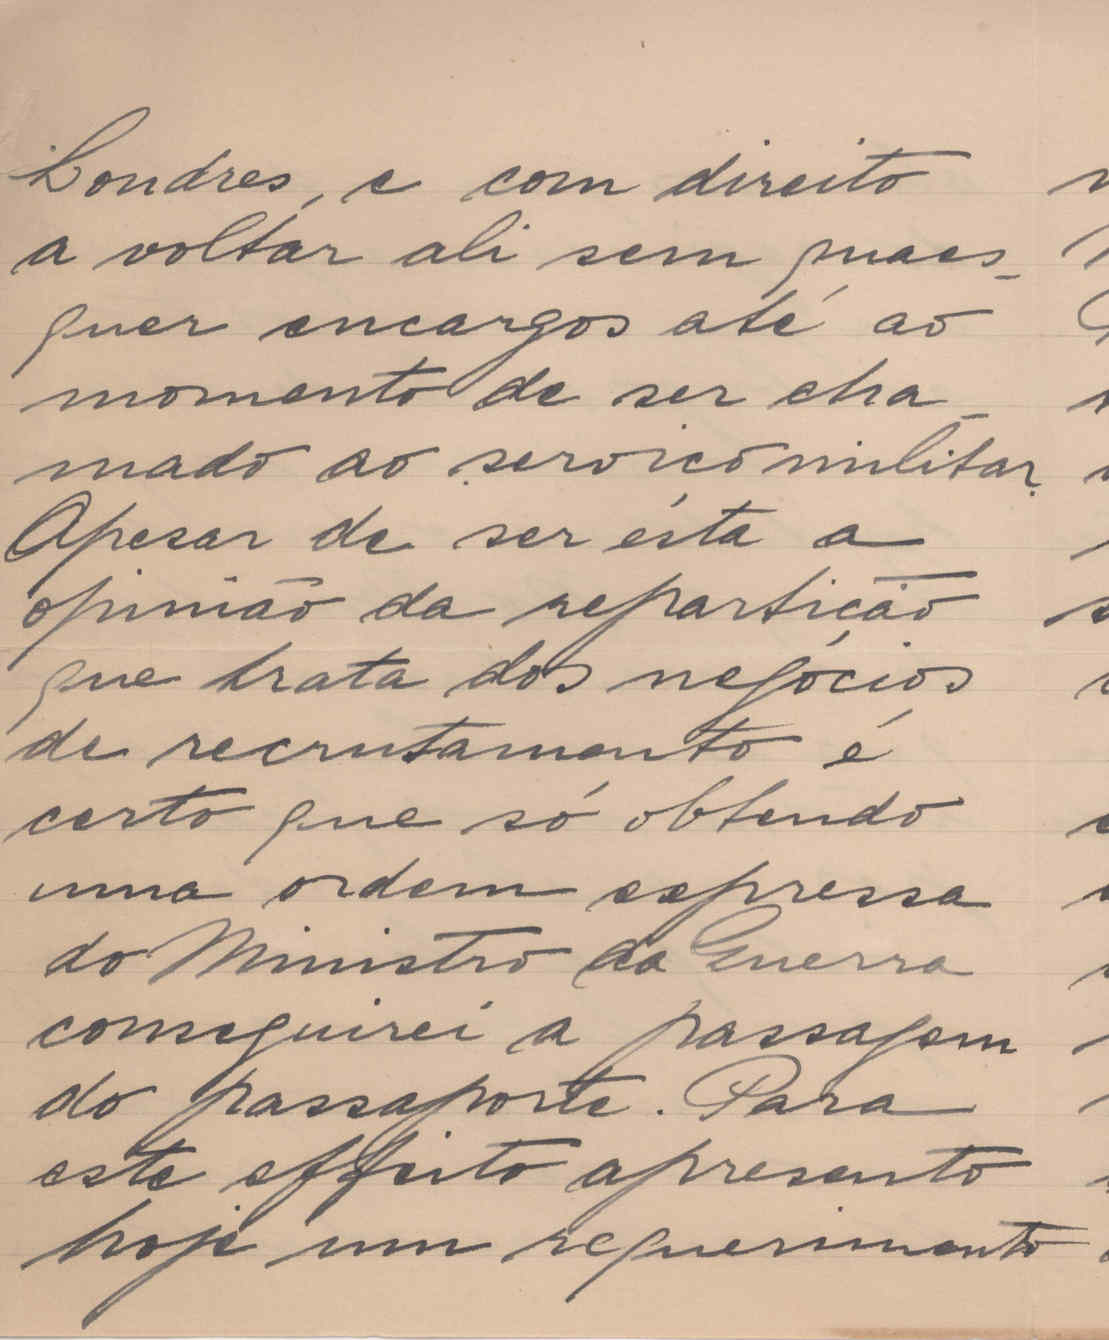 Londres, e com direito
a voltar ali sem quaes-
quer encargos até ao
momento de ser cha-
mado ao serviço militar.
Apesar de ser ésta a
opinião da repartição
que trata dos negócios
de recrutamento é
certo que só obtendo
uma ordem expressa
do Ministro da Guerra
conseguirei a passagem
do passaporte. Para
este effeito apresento
hoje um requerimento